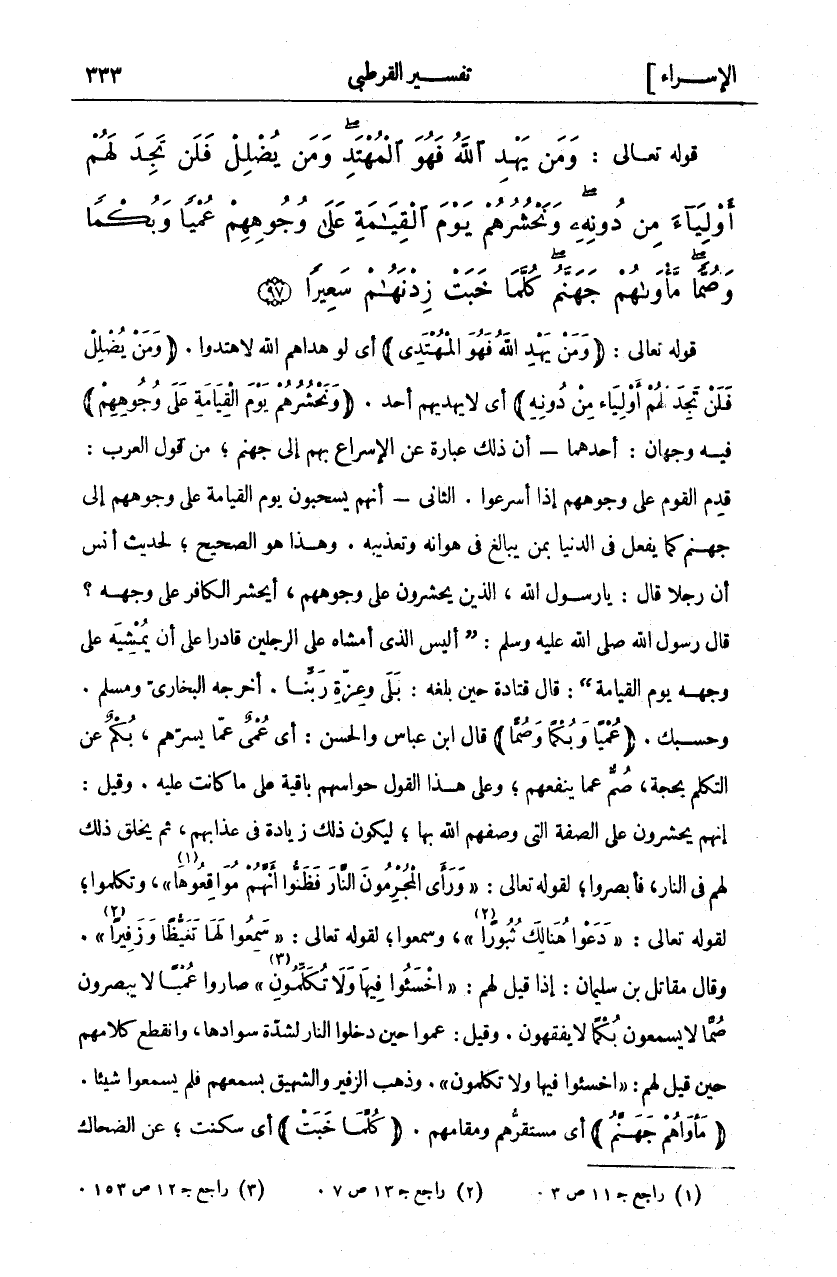 الإســـراء ] تفســـير القرطبي ٣٣٣
قوله تعـالى : وَمَن يَهْـدِ ٱللَّهُ فَهُوَ ٱلْمُهْتَدِۖ وَمَن يُضْلِلْ فَلَن تَجِـدَ لَهُمْ
أَوْلِيَآءَ مِن دُونِهِۦۖ وَنَحْشُرُهُمْ يَوْمَ ٱلْقِيَـٰمَةِ عَلَىٰ وُجُوهِهِمْ عُمْيًا وَبُكْمًا
وَصُمًّاۖ مَّأْوَىٰهُمْ جَهَنَّمُۖ كُلَّمَا خَبَتْ زِدْنَـٰهُمْ سَعِيرًا ٩٧
قوله تعالى : ﴿ وَمَنْ يَهْـدِ اللهُ فَهُوَ الْمُهْتَدِى ﴾ أى لو هداهم الله لاهتدوا . ﴿ وَمَنْ يُضْلِلْ
فَلَنْ تَجِدَ لَهُمْ أَوْلِيَاءَ مِنْ دُونِهِ ﴾ أى لايهديهم أحد . ﴿ وَنَحْشُرُهُمْ يَوْمَ الْقِيَامَةِ عَلَى وُجُوهِهِمْ ﴾
فيـه وجهان : أحدهما — أن ذلك عبارة عن الإسراع بهم إلى جهنم ؛ من قول العرب :
قدِم القوم على وجوههم إذا أسرعوا . الثانى — أنهم يسحبون يوم القيامة على وجوههم إلى
جهـنم كما يفعل فى الدنيا بمن يبالغ فى هوانه وتعذيبه . وهـذا هو الصحيح ؛ لحديث أنس
أن رجلا قال : يارسـول الله ، الذين يحشرون على وجوههم ، أيحشر الكافر على وجهـه ؟
قال رسول الله صلى الله عليه وسلم : ” أليس الذى أمشاه على الرجلين قادرا على أن يُمْشِيَه على
وجهـه يوم القيامة “ : قال قتادة حين بلغه : بَلَى وعِزّةِ رَبّنـا . أخرجه البخارىّ ومسلم .
وحسـبك . ﴿ عُمْيًا وَبُكْمًا وَصُمًّا ﴾ قال ابن عباس والحسن : أى عُمْىٌ عمّا يسرّهم ، بُكْمٌ عن
التكلم بحجة ، صُمٌّ عما ينفعهم ؛ وعلى هـذا القول حواسهم باقية على ما كانت عليه . وقيل :
إنهم يحشرون على الصفة التى وصفهم الله بها ؛ ليكون ذلك زيادة فى عذابهم ، ثم يخلق ذلك
لهم فى النار، فأبصروا؛ لقوله تعالى : « وَرَأَى الْمُجْرِمُونَ النَّارَ فَظَنُّوا أَنَّهُمْ مُوَاقِعُوهَا(١) »، وتكلموا؛
لقوله تعالى : « دَعَوْا هُنَالِكَ ثُبُورًا(٢) »، وسمعوا؛ لقوله تعالى : « سَمِعُوا لَهَا تَغَيُّظًا وَزَفِيرًا(٢) » .
وقال مقاتل بن سليمان : إذا قيل لهم : « اخْسَئُوا فِيهَا وَلَا تُكَلِّمُونِ(٣) » صاروا عُمْيًـا لا يبصرون
صُمًّا لا يسمعون بُكْمًا لا يفقهون . وقيل : عموا حين دخلوا النار لشدّة سوادها، وانقطع كلامهم
حين قيل لهم : «اخسئوا فيها ولا تكلمون» . وذهب الزفير والشهيق بسمعهم فلم يسمعوا شيئا .
﴿ مَأْوَاهُمْ جَهَنَّمُ ﴾ أى مستقرُّهم ومقامهم . ﴿ كُلَّمَـا خَبَتْ ﴾ أى سكنت ؛ عن الضحاك
(١) راجع جـ ١١ ص ٣ . (٢) راجع جـ ١٣ ص ٧ . (٣) راجع جـ ١٢ ص ١٥٣ .